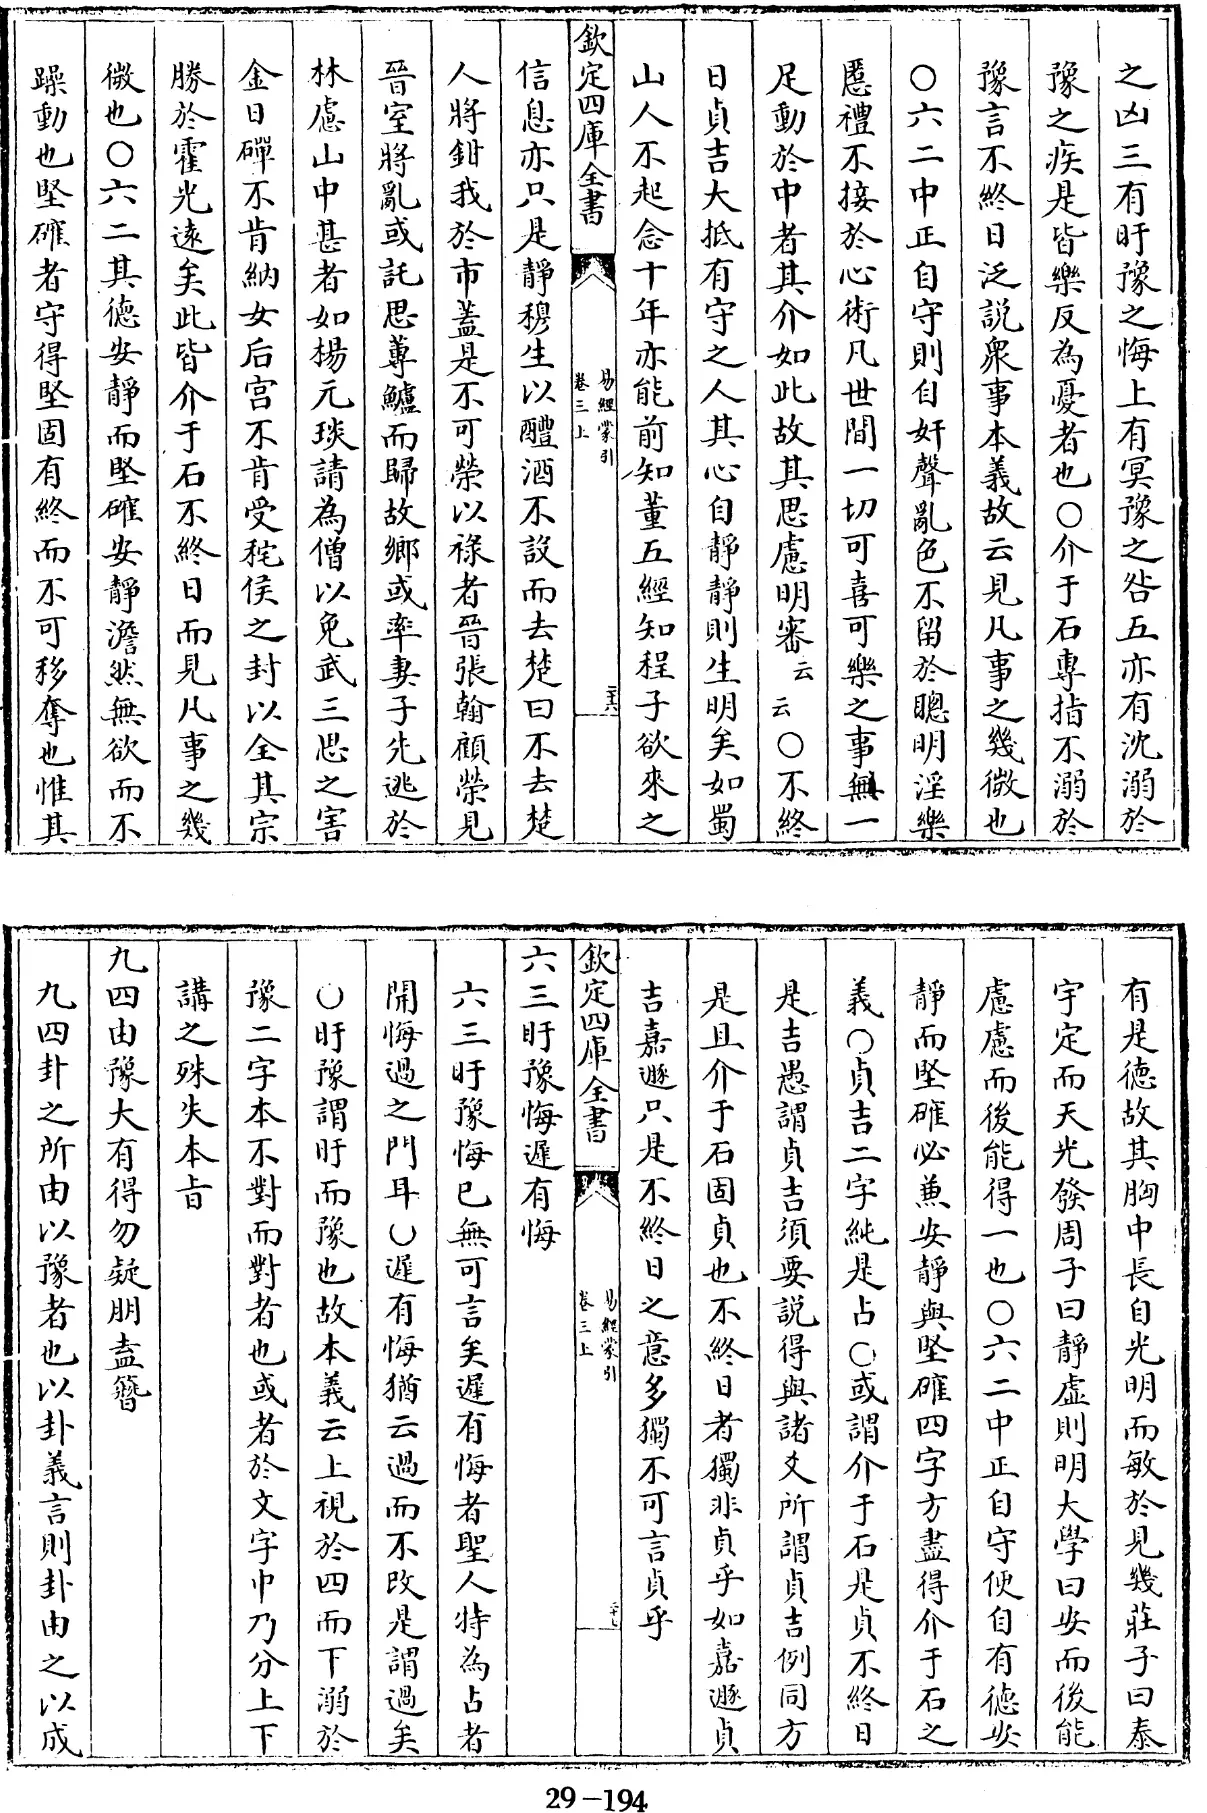 之凶三有盱豫之悔上有冥豫之咎五亦有沈溺於
豫之疾是皆樂反為憂者也○介于石專指不溺於
豫言不終日泛説衆事本義故云見凡事之幾微也
○六二中正自守則自奸聲亂色不留於聰明淫樂
慝禮不接於心術凡世間一切可喜可樂之事無一
足動於中者其介如此故其思慮明審云云○不終
日貞吉大抵有守之人其心自靜靜則生明矣如蜀
山人不起念十年亦能前知董五經知程子欲來之
欽定四庫全書
易經蒙引
卷三上
二十六
信息亦只是靜穆生以醴酒不設而去楚曰不去楚
人將鉗我於市蓋是不可榮以祿者晉張翰顧榮見
晉室將亂或託思蓴鱸而歸故鄉或率妻子先逃於
林慮山中甚者如楊元琰請為僧以免武三思之害
金日磾不肯納女后宮不肯受秺侯之封以全其宗
勝於霍光遠矣此皆介于石不終日而見凡事之幾
微也○六二其德安靜而堅確安靜澹然無欲而不
躁動也堅確者守得堅固有終而不可移奪也惟其
有是德故其胸中長自光明而敏於見幾莊子曰泰
宇定而天光發周子曰靜虛則明大學曰安而後能
慮慮而後能得一也○六二中正自守便自有德安
靜而堅確必兼安靜與堅確四字方盡得介于石之
義○貞吉二字純是占○或謂介于石是貞不終日
是吉愚謂貞吉須要説得與諸爻所謂貞吉例同方
是且介于石固貞也不終日者獨非貞乎如嘉遯貞
吉嘉遯只是不終日之意多獨不可言貞乎
欽定四庫全書
易經蒙引
卷三上
二十七
六三盱豫悔遲有悔
六三盱豫悔已無可言矣遲有悔者聖人特為占者
開悔過之門耳○遲有悔猶云過而不改是謂過矣
○盱豫謂盱而豫也故本義云上視於四而下溺於
豫二字本不對而對者也或者於文字中乃分上下
講之殊失本旨
九四由豫大有得勿疑朋盍簪
九四卦之所由以豫者也以卦義言則卦由之以成
29-194